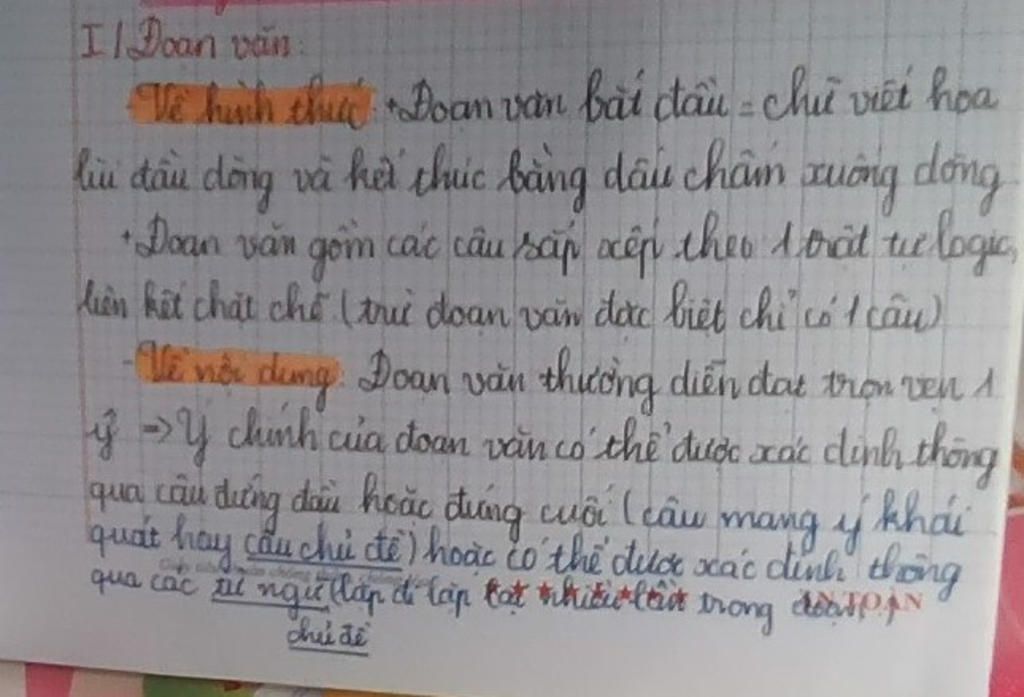 I/ Đoạn văn:
- Về hình thức: + Đoạn văn bắt đầu = chữ viết hoa
lùi đầu dòng và kết thúc bằng dấu chấm xuống dòng
+ Đoạn văn gồm các câu sắp xếp theo 1 trật tự logic,
liên kết chặt chẽ (trừ đoạn văn đặc biệt chỉ có 1 câu)
- Về nội dung: Đoạn văn thường diễn đạt trọn vẹn 1
ý => Ý chính của đoạn văn có thể được xác định thông
qua câu đứng đầu hoặc đứng cuối (câu mang ý khái
quát hay câu chủ đề) hoặc có thể được xác định thông
qua các từ ngữ (lặp đi lặp lại nhiều lần trong đoạn)
chủ đề